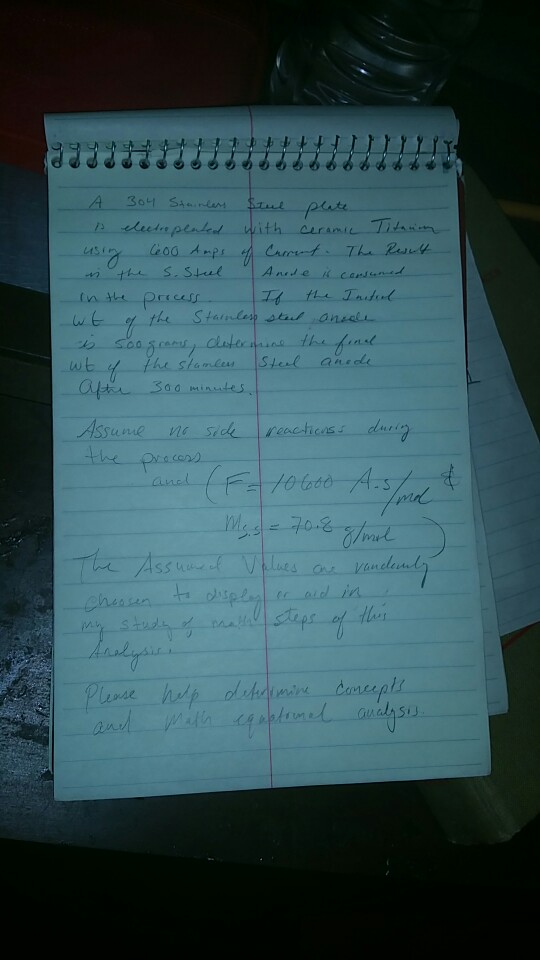 A 304 Stainless Steel plate
is electroplated with ceramic Titanium
using 600 Amps of Current. The Result
is the S. Steel Anode is consumed
in the process. If the Initial
wt of the Stainless steel anode
is 500 grams, determine the final
wt of the stainless Steel anode
After 300 minutes.
Assume no side reactions during
the process
and (F = 10600 A-s/mol &
Ms.s = 70.8 g/mol)
The Assumed Values are randomly
choosen to display or aid in
my study of math steps of this
Analysis.
Please help determine concepts
and Math equational analysis.